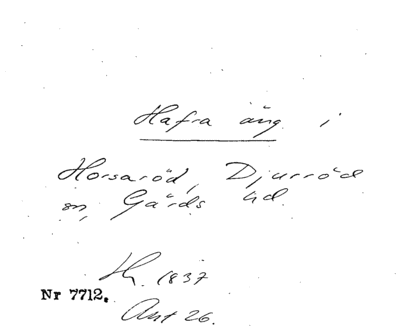 Hafra äng i
Horsaröd, Djurröd
sn, Gärds hd.
Th. 1837
Nr 7712.
Ant 26.